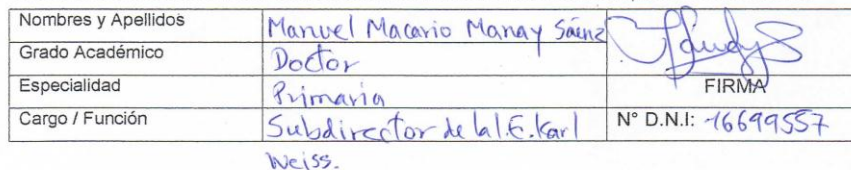 Nombres y Apellidos Manuel Macario Manay Sáenz
Grado Académico Doctor
Especialidad Primaria FIRMA
Cargo / Función Subdirector de la I.E. Karl N° D.N.I: 16699557
Weiss.